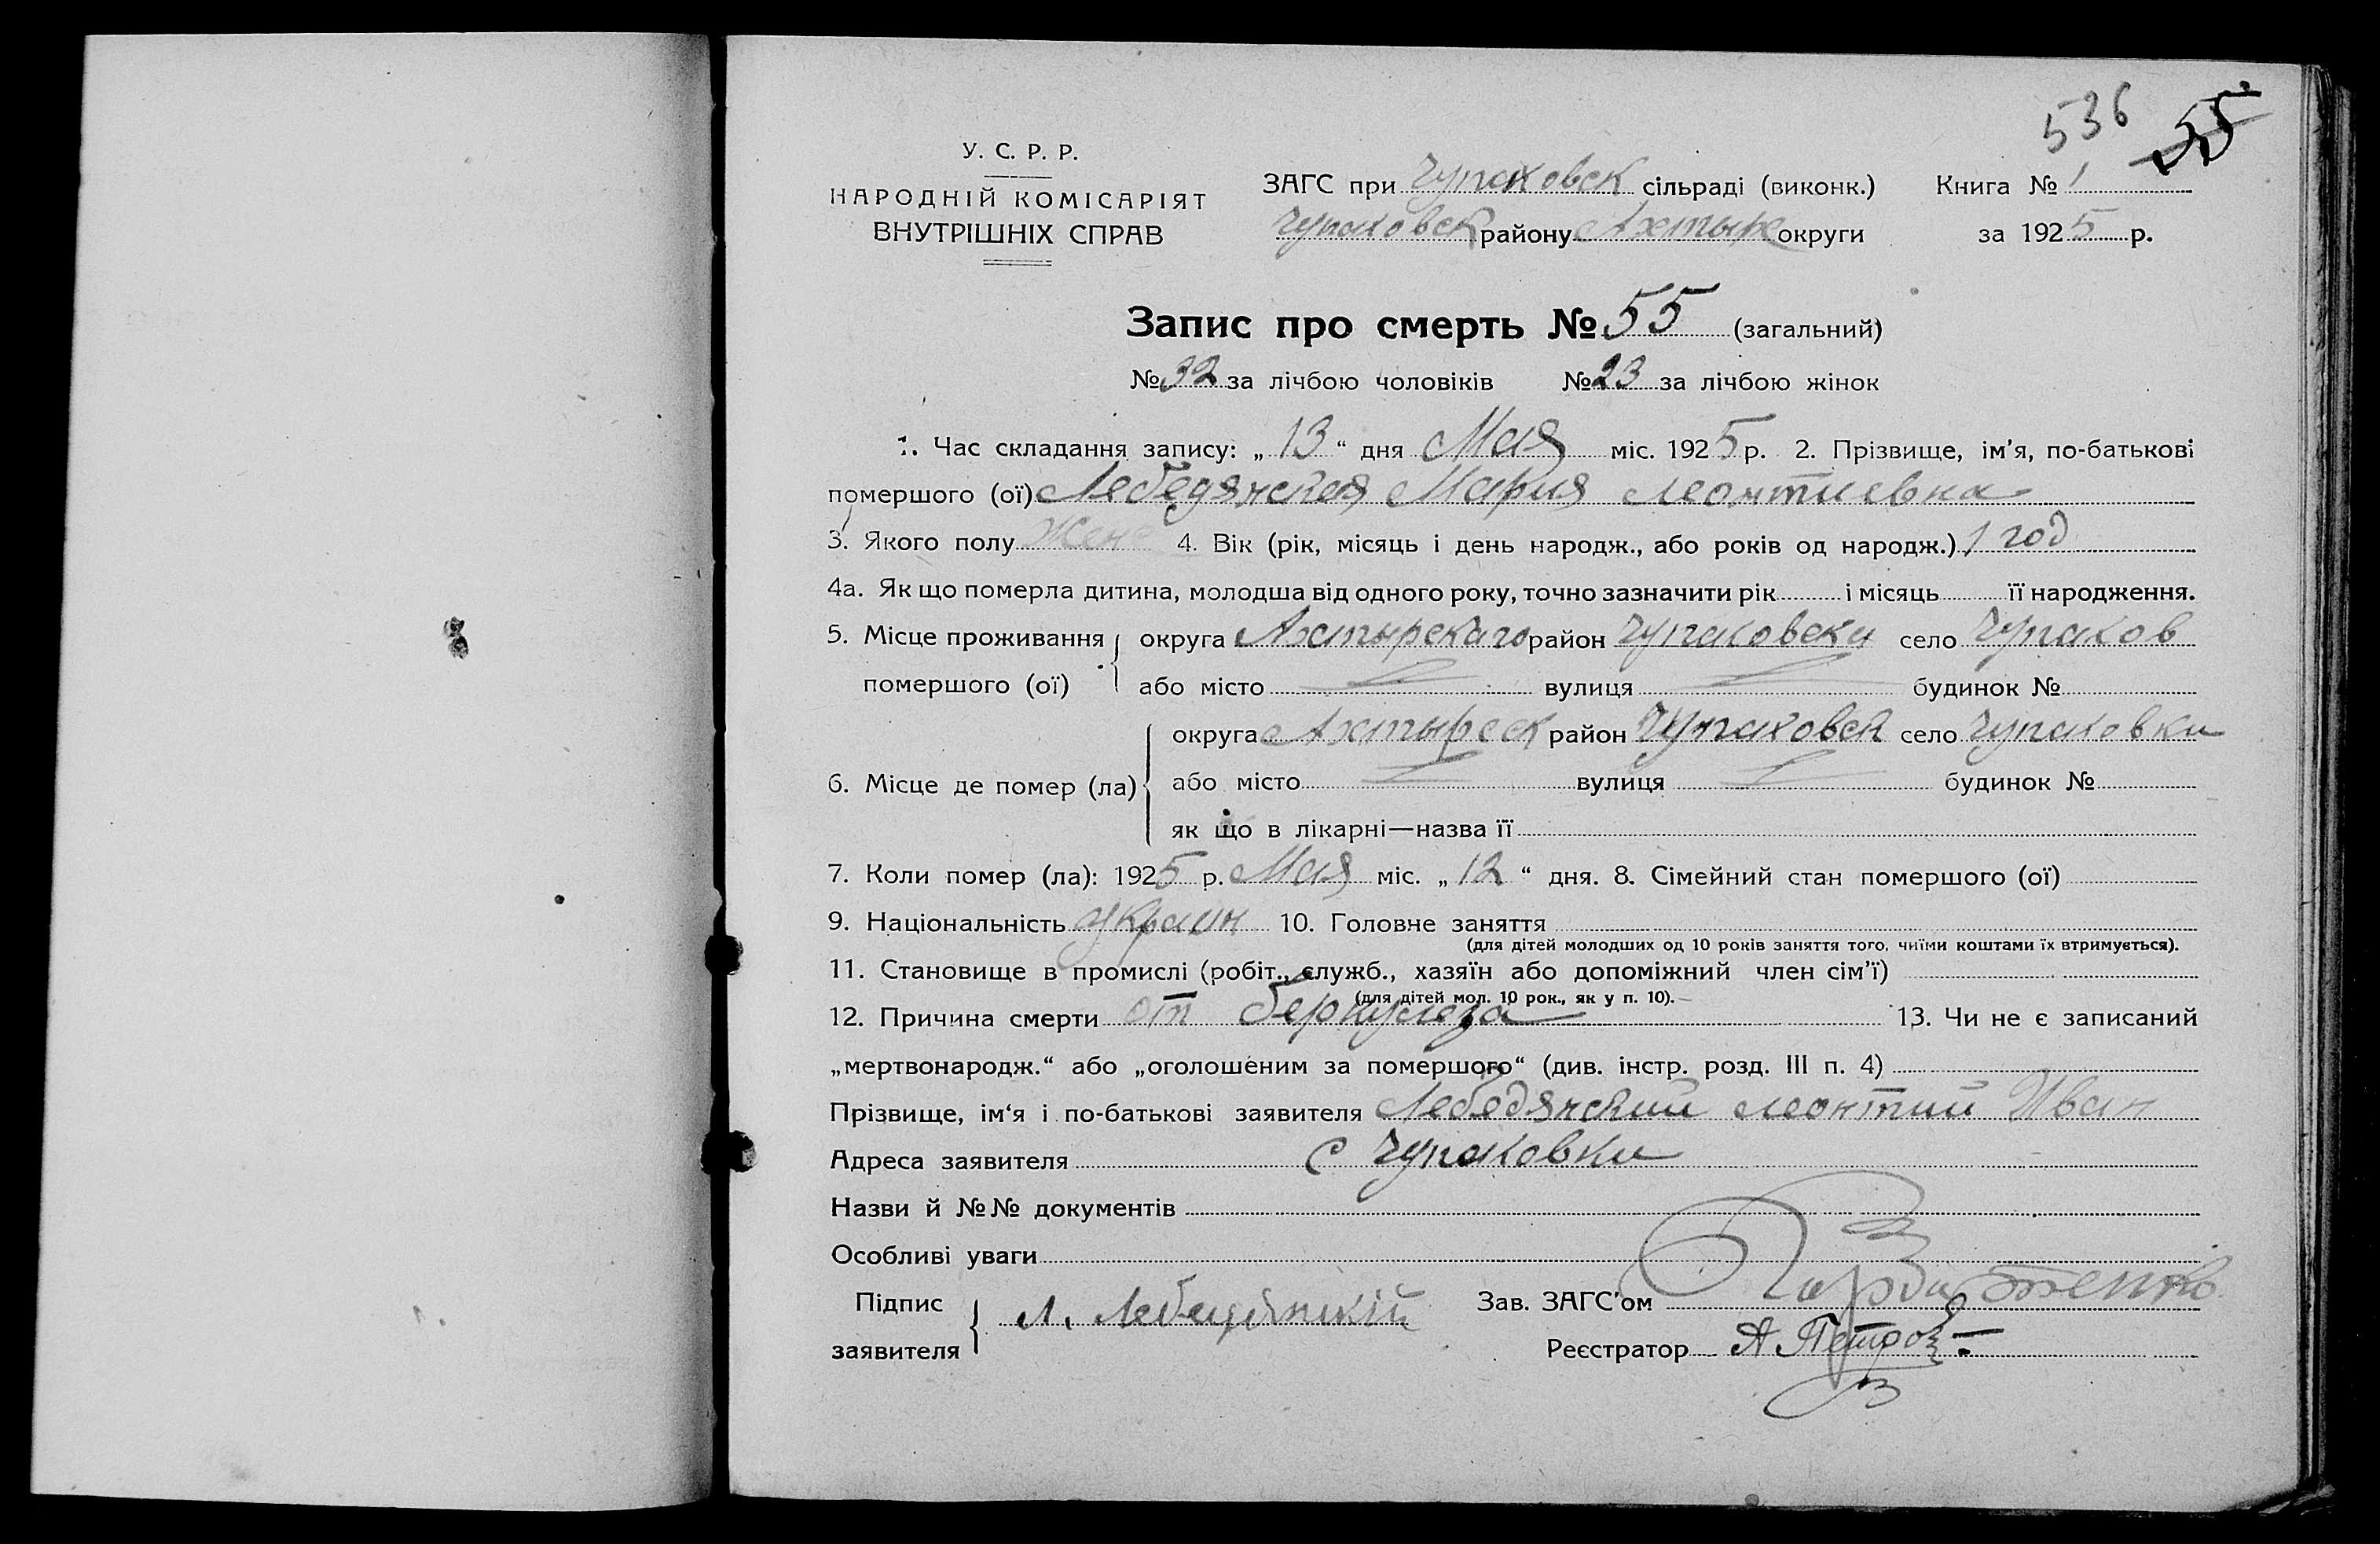 536 55
У. С. Р. Р.
НАРОДНІЙ КОМІСАРІЯТ
ВНУТРІШНІХ СПРАВ
ЗАГС при Чупаховск сільраді (виконк.) Книга № 1
Чупаховск району Ахтырс округи за 1925 р.
Запис про смерть № 55 (загальний)
№ 32 за лічбою чоловіків № 23 за лічбою жінок
1. Час складання запису: „ 13 “ дня Мая міс. 1925 р. 2. Прізвище, ім’я, по-батькові
помершого (ої) Лебедянская Мария Леонтиевна
3. Якого полу Жен 4. Вік (рік, місяць і день народж., або років од народж.) 1 год
4а. Як що померла дитина, молодша від одного року, точно зазначити рік і місяць її народження.
5. Місце проживання округа Ахтырскаго район Чупаховски село Чупахов
помершого (ої) або місто вулиця будинок №
округа Ахтырск район Чупаховск село Чупаховки
6. Місце де помер (ла) або місто вулиця будинок №
як що в лікарні—назва її
7. Коли помер (ла): 1925 р. Мая міс. „ 12 “ дня. 8. Сімейний стан помершого (ої)
9. Національність Украин 10. Головне заняття
(для дітей молодших од 10 років заняття того, чиїми коштами їх втримується).
11. Становище в промислі (робіт., служб., хазяїн або допоміжний член сім’ї)
(для дітей мол. 10 рок., як у п. 10).
12. Причина смерти от беркулеза 13. Чи не є записаний
„мертвонародж.“ або „оголошеним за помершого“ (див. інстр. розд. III п. 4)
Прізвище, ім‘я і по-батькові заявителя Лебедянский Леонтий Иван
Адреса заявителя с Чупаховки
Назви й №№ документів
Особливі уваги
Підпис Л. Лебедянский Зав. ЗАГС’ом
заявителя Реєстратор А Петров